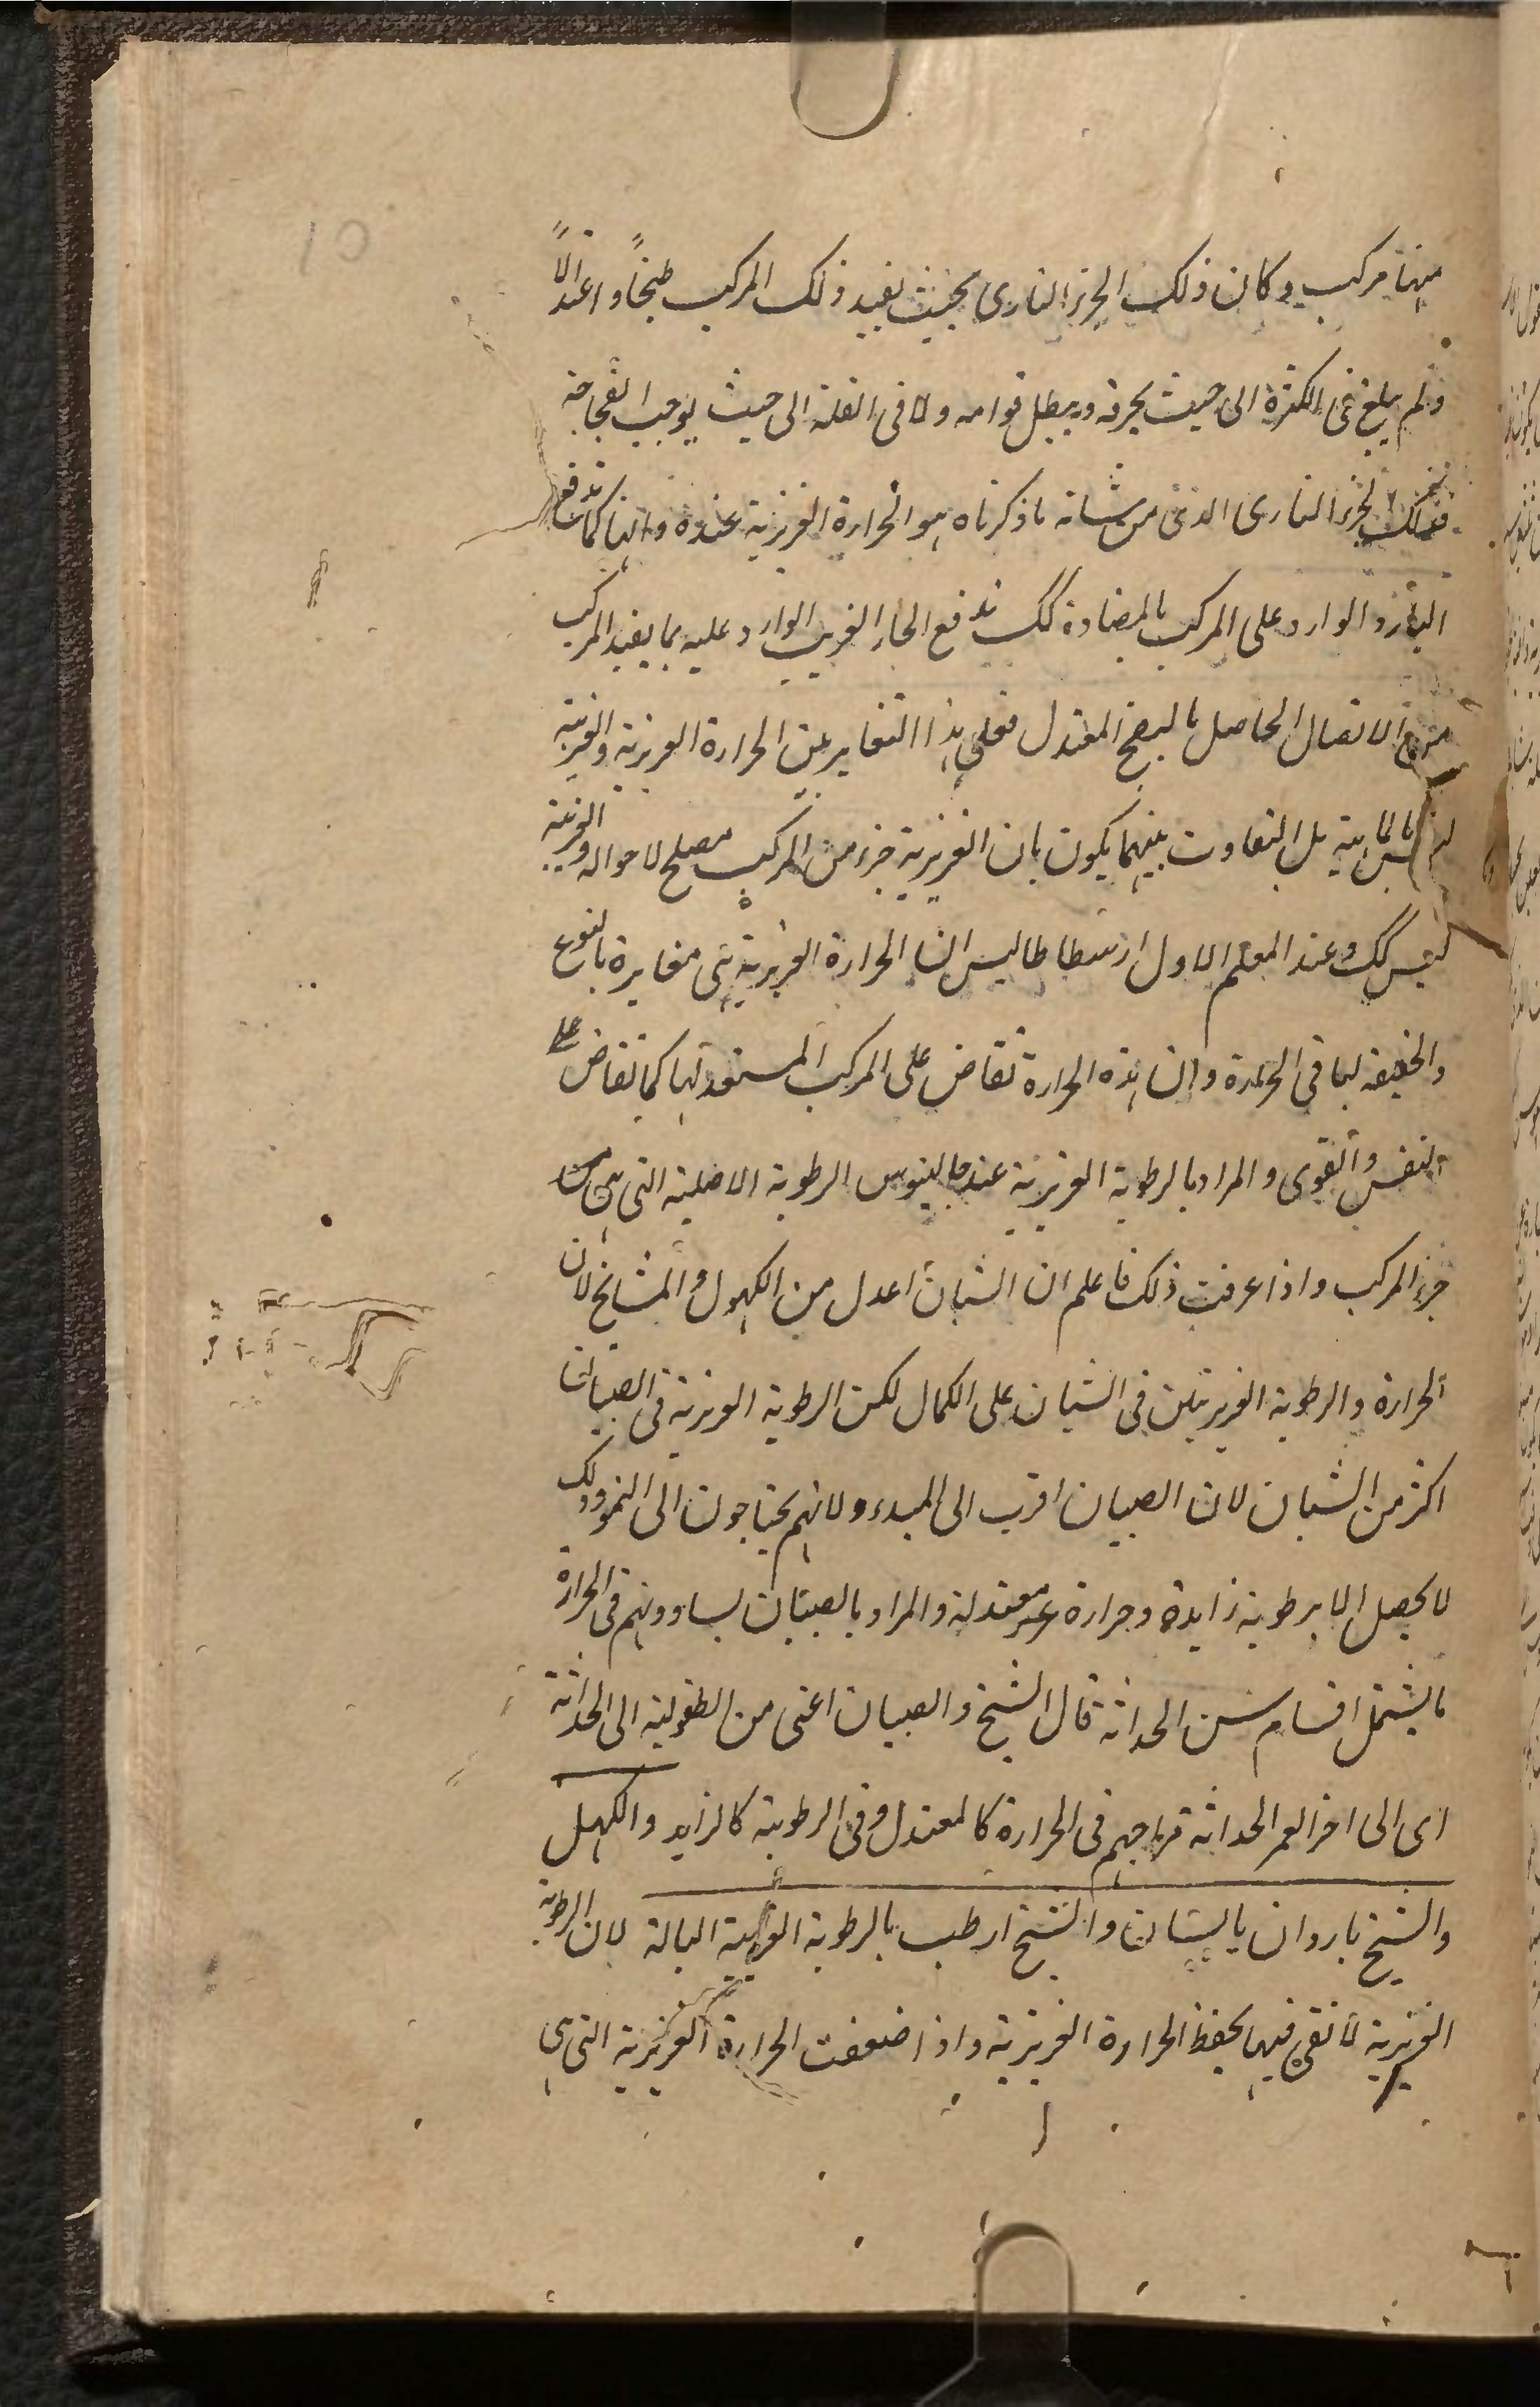 منها مركب وكان ذلك الجزء النارى بحيث يفيد ذلك المركب طبخاً واعتدالاً
ولم يبلغ فى الكثرة الى حيث يحرقه ويبطل قوامه ولا فى القلة الى حيث يوجب الفجاجة
فذلك الجزء النارى الذى من شانه ما ذكرناه هو الحرارة الغريزية عنده وانها كما تدفع
البارد الوارد على المركب بالمضادة كك تدفع الحار الغريب الوارد عليه بما يفيد المركب
من الاتصال الحاصل بالنضج المعتدل فعلى هذا التغاير بين الحرارة الغريزية والغريبة
ليس بالماهية بل التفاوت بينهما يكون بان الغريزية جزء من المركب مصلح لاحواله والغريبة
ليس كك وعند المعلم الاول ارسطاطاليس ان الحرارة الغريزية هى مغايرة بالنوع
والحقيقة لما فى الحرارة وان هذه الحرارة تفاض على المركب المستعد لها كما تفاض على
النفس والقوى والمراد بالرطوبة الغريزية عند جالينوس الرطوبة الاصلية التى هى
جزء المركب واذا عرفت ذلك فاعلم ان الشبان اعدل من الكهول والمشايخ لان
الحرارة والرطوبة الغريزيتين فى الشبان على الكمال لكن الرطوبة الغريزية فى الصبيان
اكثر من الشبان لان الصبيان اقرب الى المبدء ولانهم يحتاجون الى النمو وذلك
لا يحصل الا برطوبة زايدة وحرارة غير معتدلة والمراد بالصبيان يساوونهم فى الحرارة
ما يشتمل اقسام سن الحداثة قال الشيخ والصبيان اعنى من الطفولية الى الحداثة
اى الى اخر العمر الحداثة مزاجهم فى الحرارة كالمعتدل وفى الرطوبة كالزايد والكهل
والشيخ باردان يابسان والشيخ ارطب بالرطوبة الغريبة البالة لان الرطوبة
الغريزية لا تفى فيها بحفظ الحرارة الغريزية واذا ضعفت الحرارة الغريزية التى هى